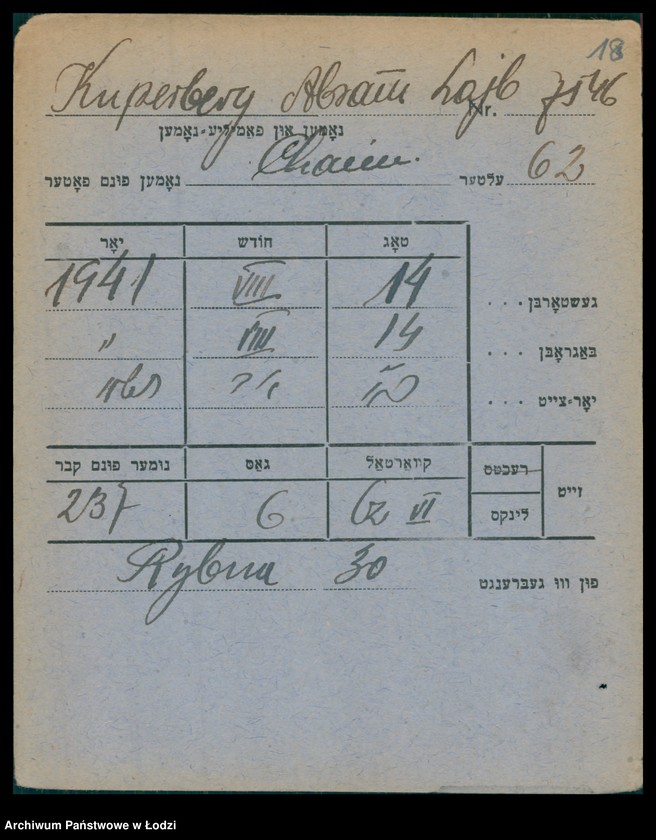 18
Kuperberg Abram Lajb Nr. 7546
נאָמען און פאַמיליע-נאָמען
נאָמען פונם פאָטער Chaim. עלטער 62
טאָג חודש יאָר
געשטאָרבן . . . 14 VIII 1941
באַגראָבן . . . 14 VIII "
יאָר-צייט . . .
זייט רעכטס לינקס קוואַרטאַל גאַס נומער פונם קבר
VI 6 237
פון וווּ געברענגט Rybna 30
Archiwum Państwowe w Łodzi